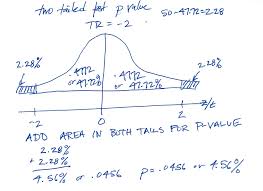 two tailed test p value 50-47.72=2.28
TR = -2
2.28% 2.28%
.4772 .4772
or 47.72% or 47.72%
-2 0 2 z/t
ADD AREA IN BOTH TAILS FOR P-VALUE
2.28%
+ 2.28%
4.56% or .0456 p=.0456 or 4.56%